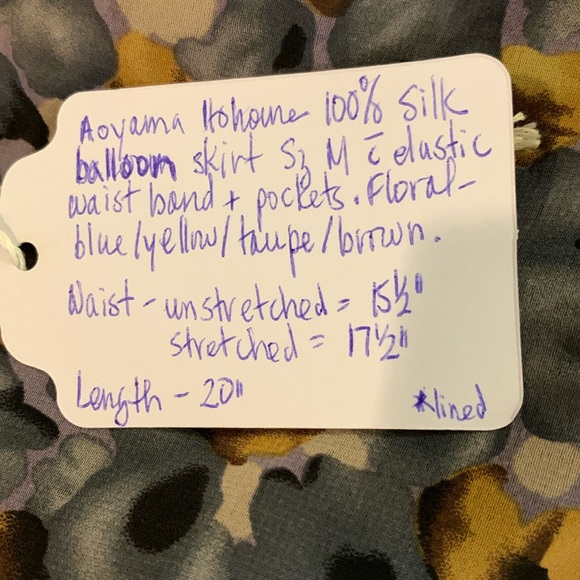 Aoyama Itohome 100% Silk
balloon skirt Sz M c̄ elastic
waist band + pockets. Floral-
blue/yellow/taupe/brown.
Waist - unstretched = 15½"
stretched = 17½"
Length - 20"
*lined